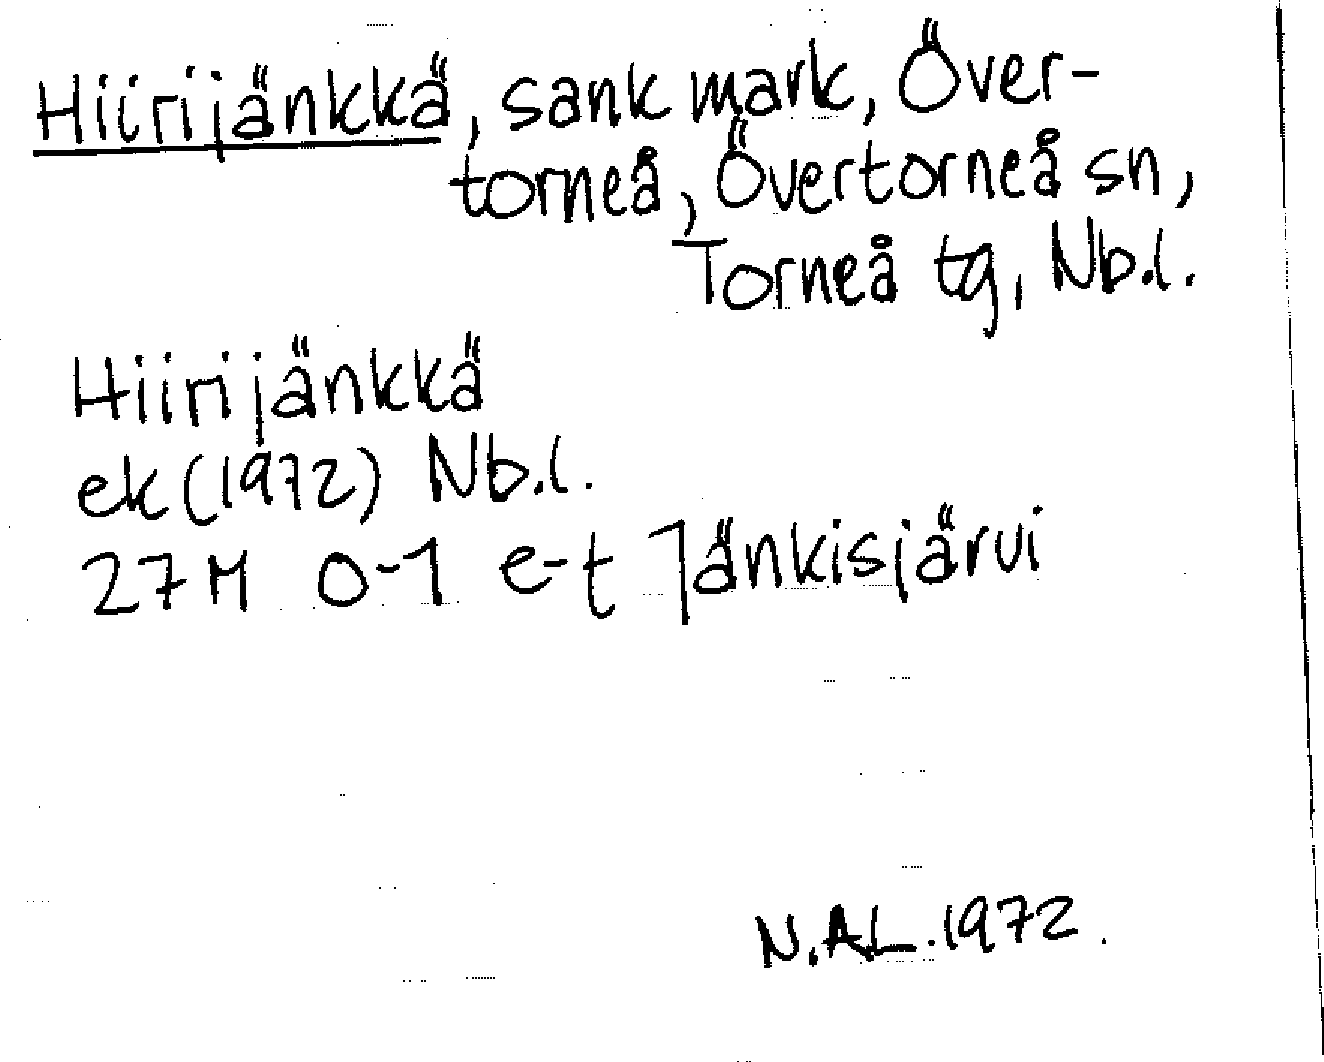 Hiirijänkkä, sank mark, Över-
torneå, Övertorneå sn,
Torneå tg, Nb.l.
Hiirijänkkä
ek (1972) Nb.l.
27M 0-1 e-t Jänkisjärvi
N.AL.1972.